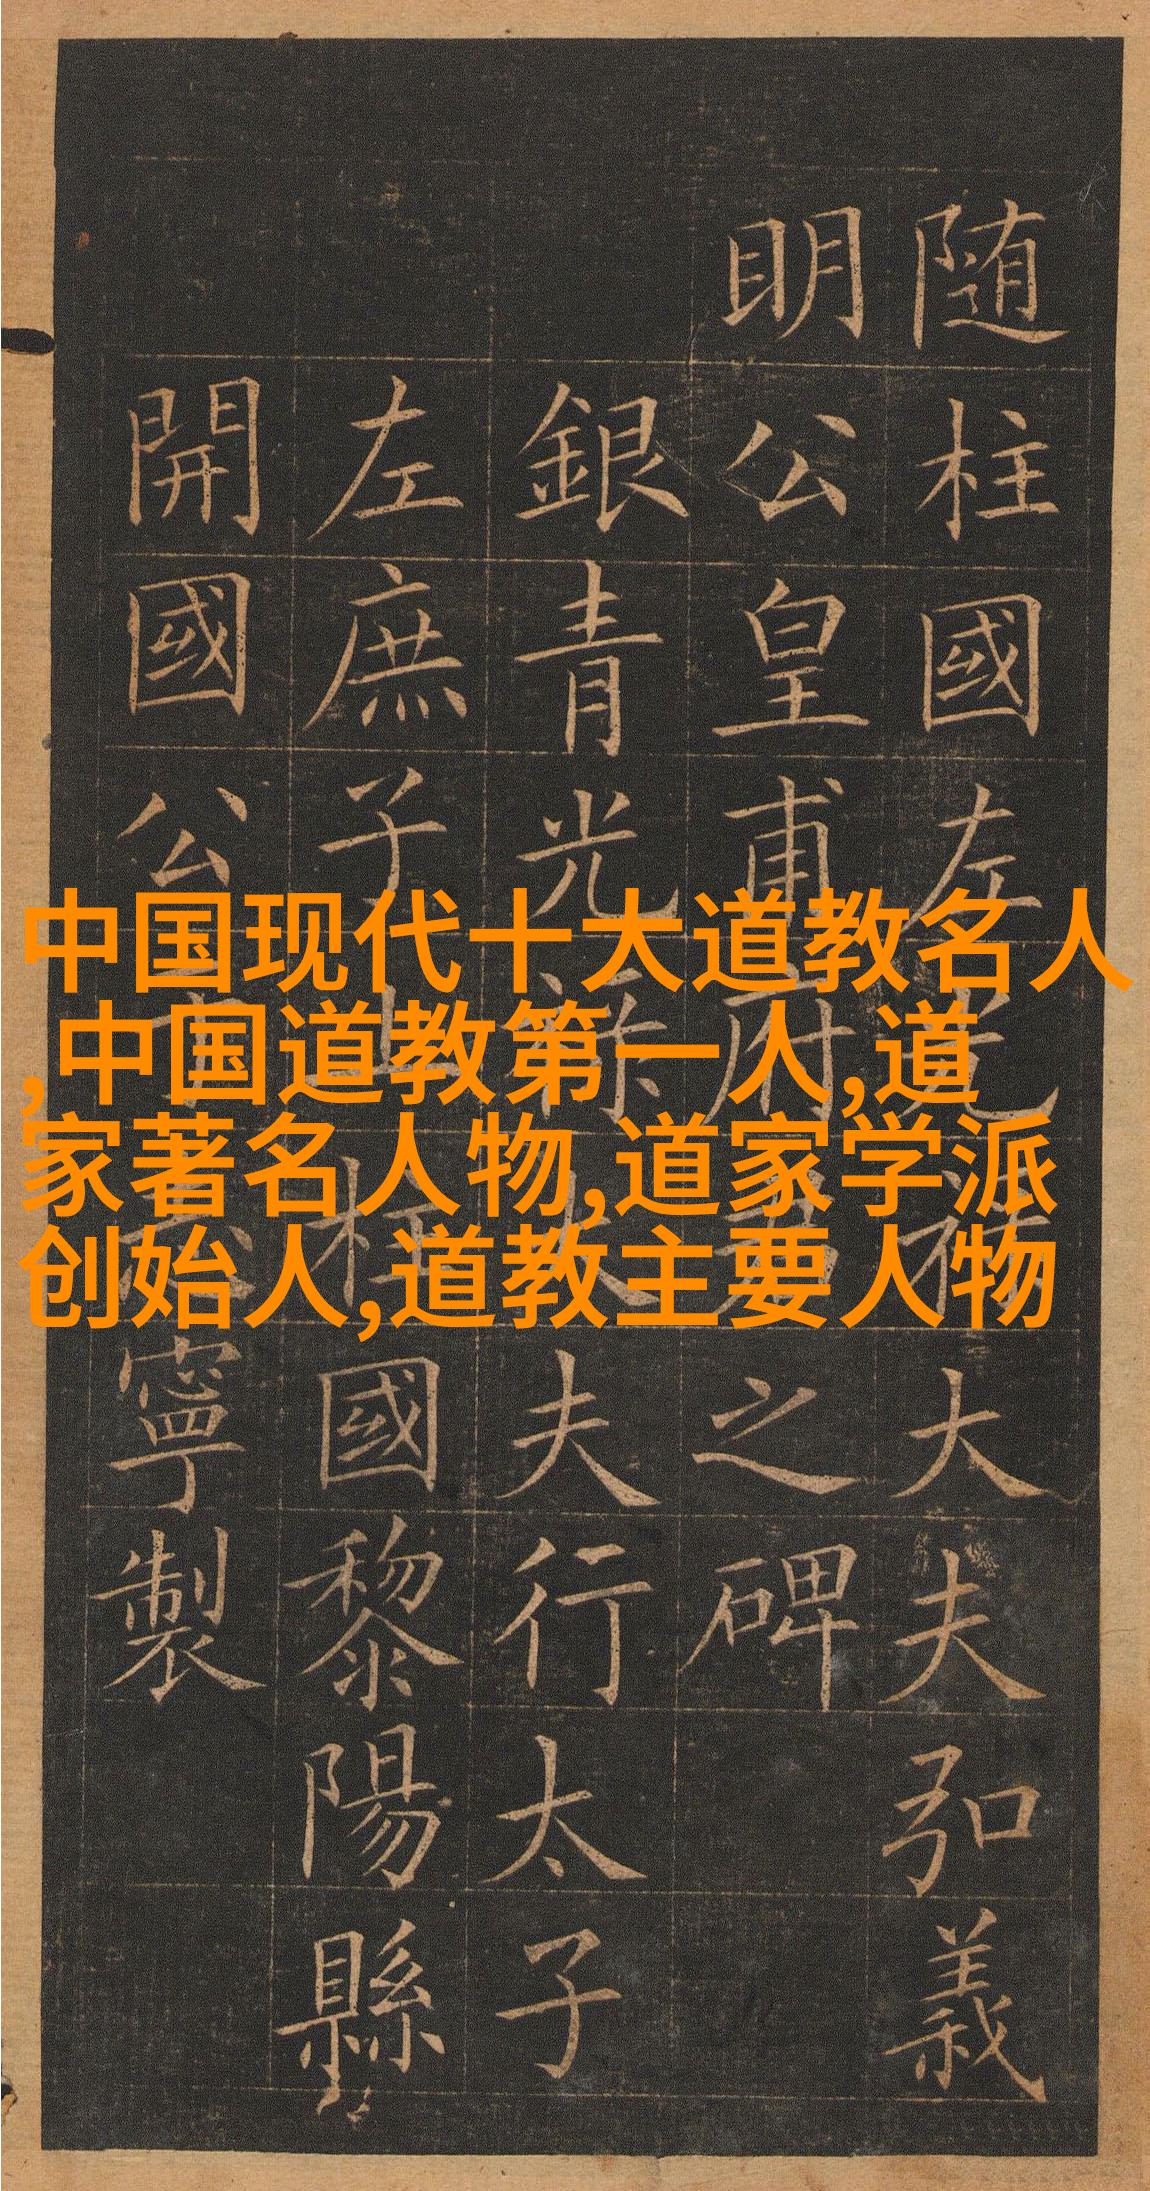 随柱國左光祿大夫弘義
明公皇甫府君之碑
銀青光祿大夫行太子
左庶子上柱國黎陽縣
開國公于志寧製
中国现代十大道教名人
,中国道教第一人,道
家著名人物,道家学派
创始人,道教主要人物